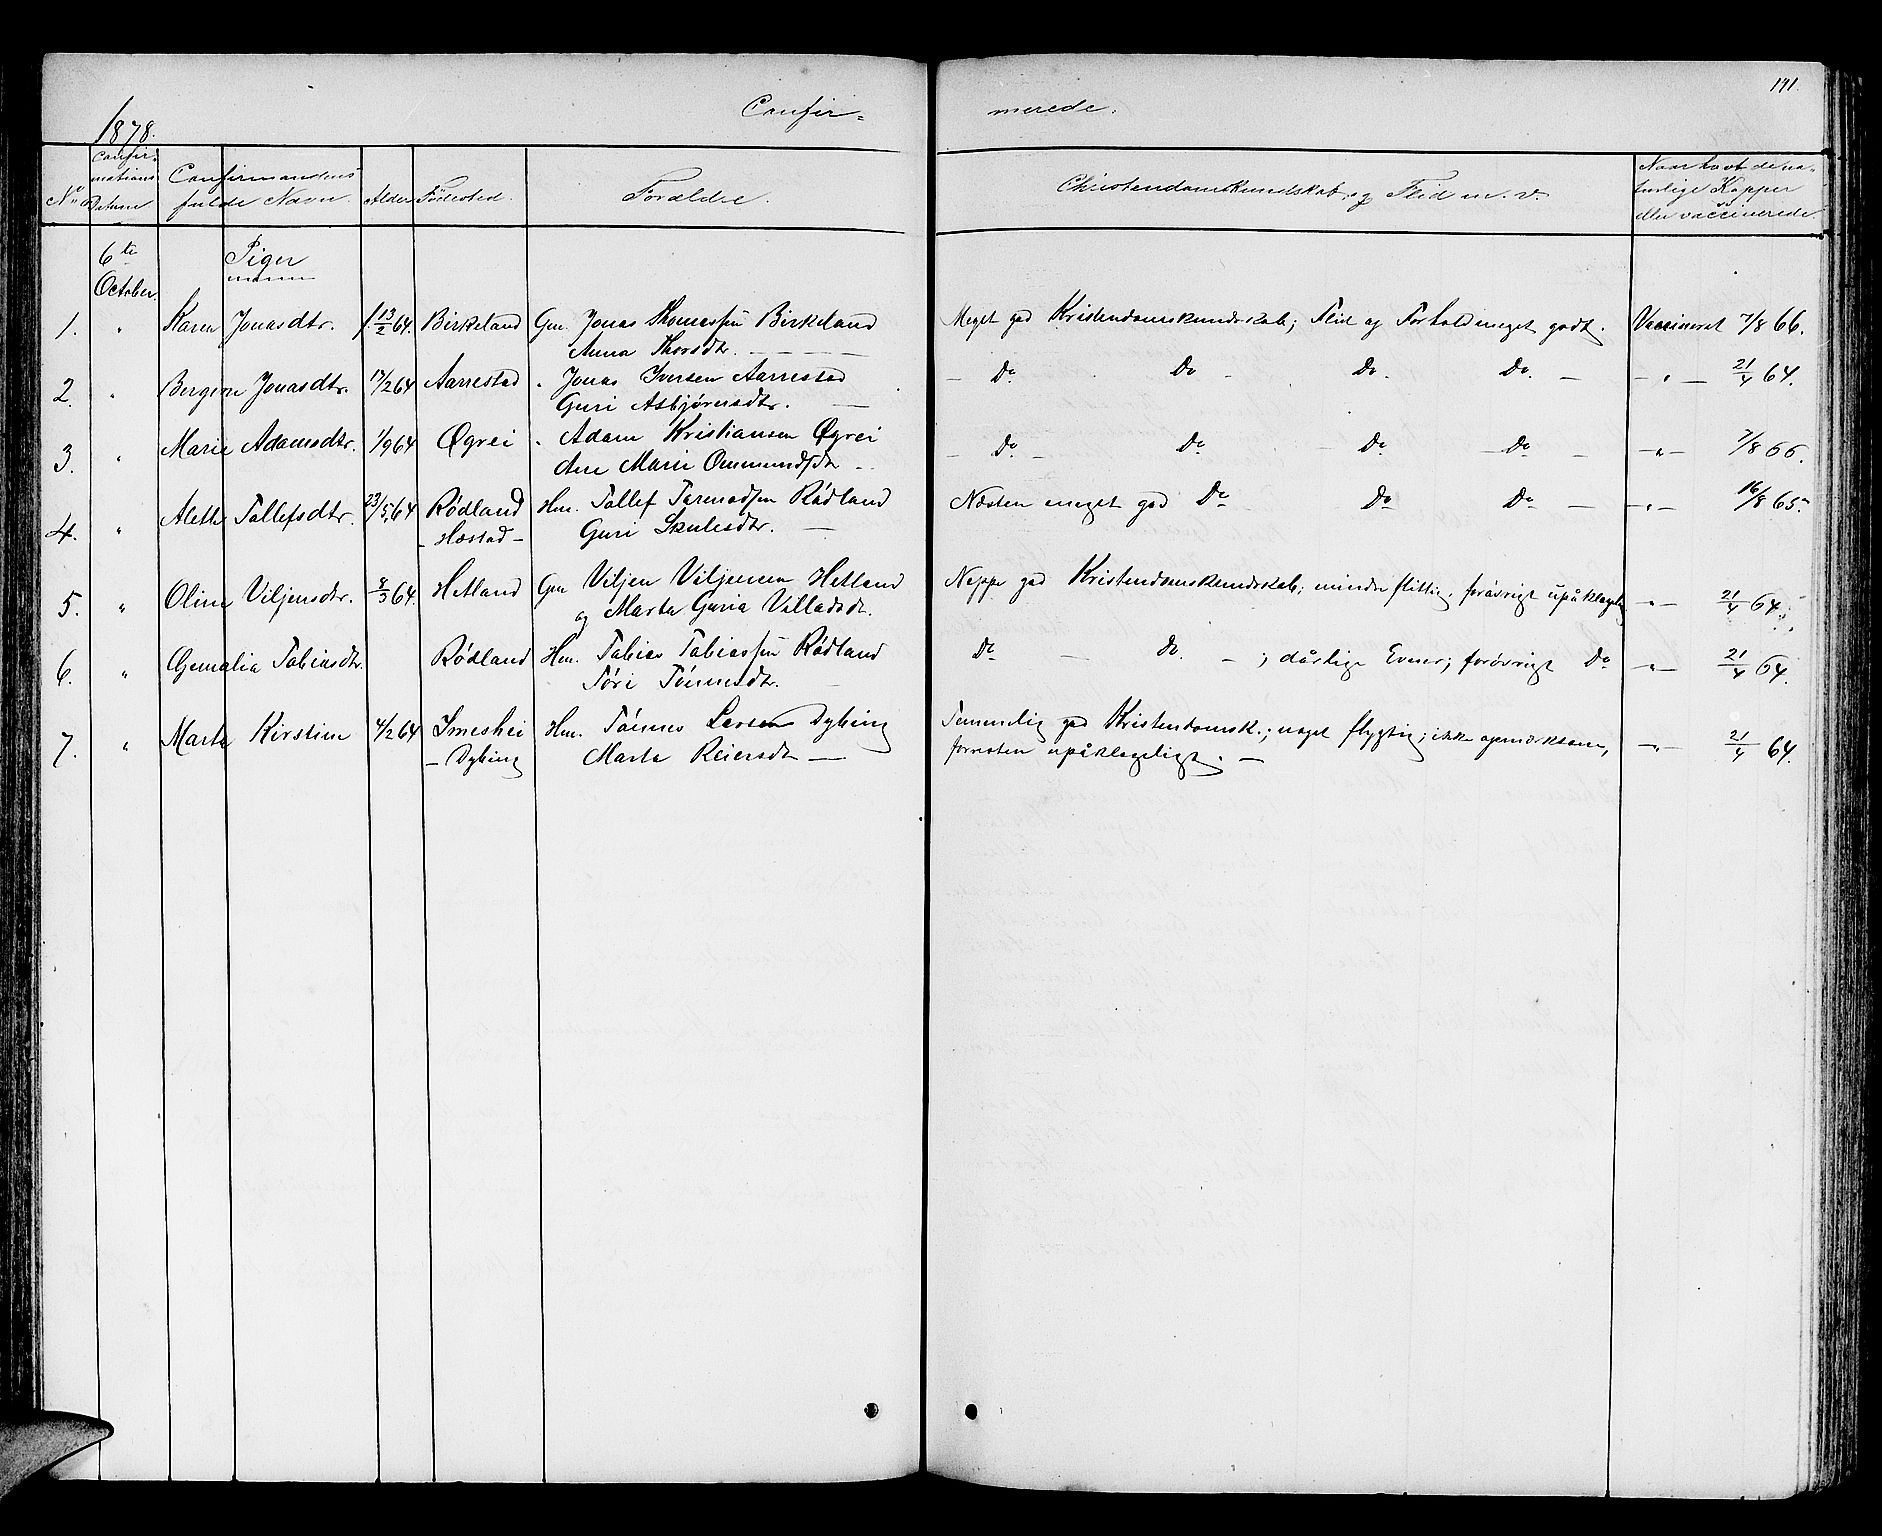 141.
1878.
Confir= merede.
No Confir- mations Datum Confirmandens fulde Navn. Alder Fødested. Forældre. Christendomskundskab, og Flid m. v. Naar havt de na- turlige Kopper eller vaccinerede
6te October. Piger
1. " Karen Jonasdtr. 13/2 64. Birkeland Gm. Jonas Thomassen Birkeland Meget god Kristendomskundskab; Flid og Forhold meget godt. Vaccineret 7/8 66.
Anna Thorsdtr. — — — —
2. " Bergine Jonasdtr. 17/2 64 Aarrestad " Jonas Iversen Aarrestad — Do Do — Do. Do. — — " — 21/4 64.
Guri Asbjørnsdtr. —
3. " Marie Adamsdtr. 1/9 64 Øgrei " Adam Kristiansen Øgrei — Do — Do Do Do — —"— 7/8 66.
Ane Marie Ommundsdtr —
4. " Alethe Tollefsdtr. 23/5 64 Rødland Hm. Tollef Tarmodsen Rødland Næsten meget god Do Do Do — —"— 16/8 65.
- Hæstad - Guri Skulesdtr. —
5. " Oline Viljensdtr. 8/3 64. Hetland Gm Viljen Viljensen Hetland Neppe god Kristendomskundskab; mindre flittig, forøvrigt upåklagelig " — 21/4 64.
og Marta Guria Villadsdt.
6. " Tobiasdtr. Rødland Hm. Tobias Tobiassen Rødland Do — Do. — ; dårlige Evner; forøvrigt Do " — 21/4 64.
Tøri Tønnesdtr.
7. " Marta Kirstine 4/2 64 Imeshei Hm. Tønnes Larsen Dybing Temmelig god Kristendomsk.; noget flygtig; ikke opmærksom, —"— 21/4 64.
- Dybing Marta Reiersdtr — forresten upåklageligt. —